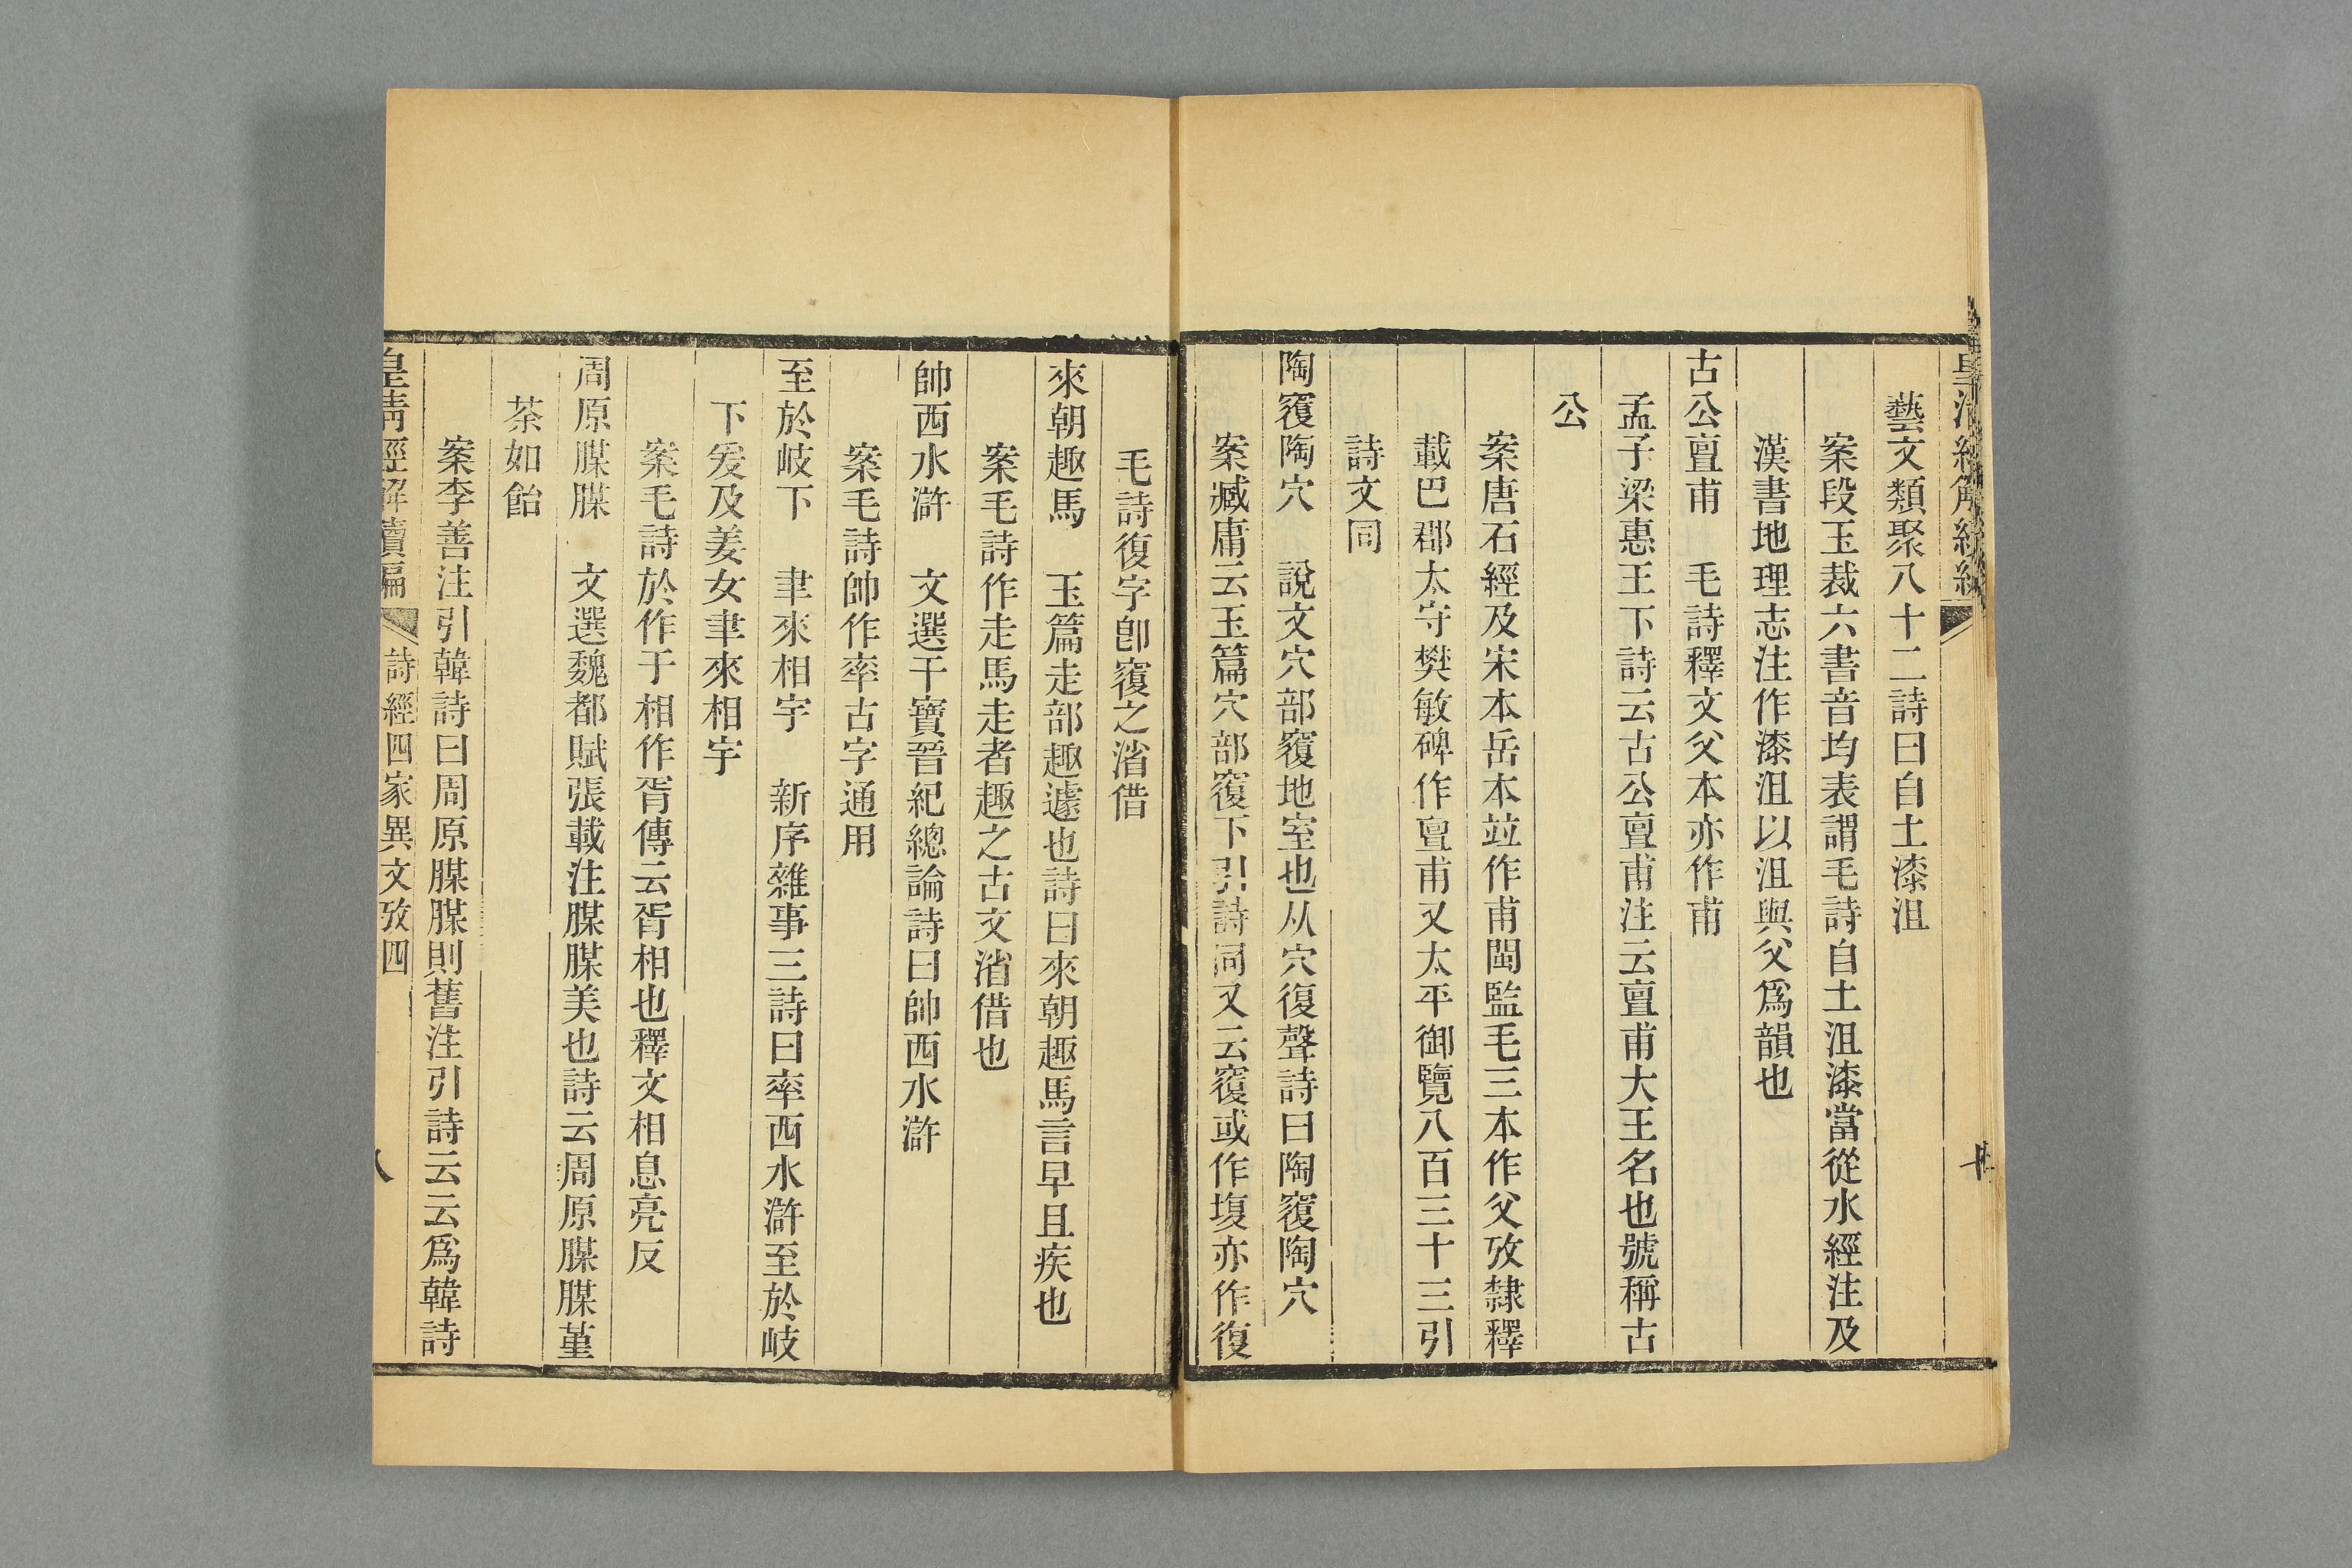 藝文類聚八十二詩曰自土漆沮
案段玉裁六書音均表謂毛詩自土沮漆當從水經注及
漢書地理志注作漆沮以沮與父爲韻也
古公亶甫　毛詩釋文父本亦作甫
孟子梁惠王下詩云古公亶甫注云亶甫大王名也號稱古
公
案唐石經及宋本岳本竝作甫閩監毛三本作父攷隸釋
載巴郡太守樊敏碑作亶甫又太平御覽八百三十三引
詩文同
陶㝮陶穴　說文穴部㝮地室也从穴復聲詩曰陶㝮陶穴
案臧庸云玉篇穴部㝮下引詩同又云㝮或作㙏亦作復
毛詩復字卽㝮之渻借
來朝趣馬　玉篇走部趣遽也詩曰來朝趣馬言早且疾也
案毛詩作走馬走者趣之古文渻借也
帥西水滸　文選干寶晉紀總論詩曰帥西水滸
案毛詩帥作率古字通用
至於岐下　聿來相宇　新序雜事三詩曰率西水滸至於岐
下爰及姜女聿來相宇
案毛詩於作于相作胥傳云胥相也釋文相息亮反
周原腜腜　文選魏都賦張載注腜腜美也詩云周原腜腜菫
荼如飴
案李善注引韓詩曰周原腜腜則舊注引詩云云爲韓詩
皇淸經解續編　詩經四家異文攷四　八